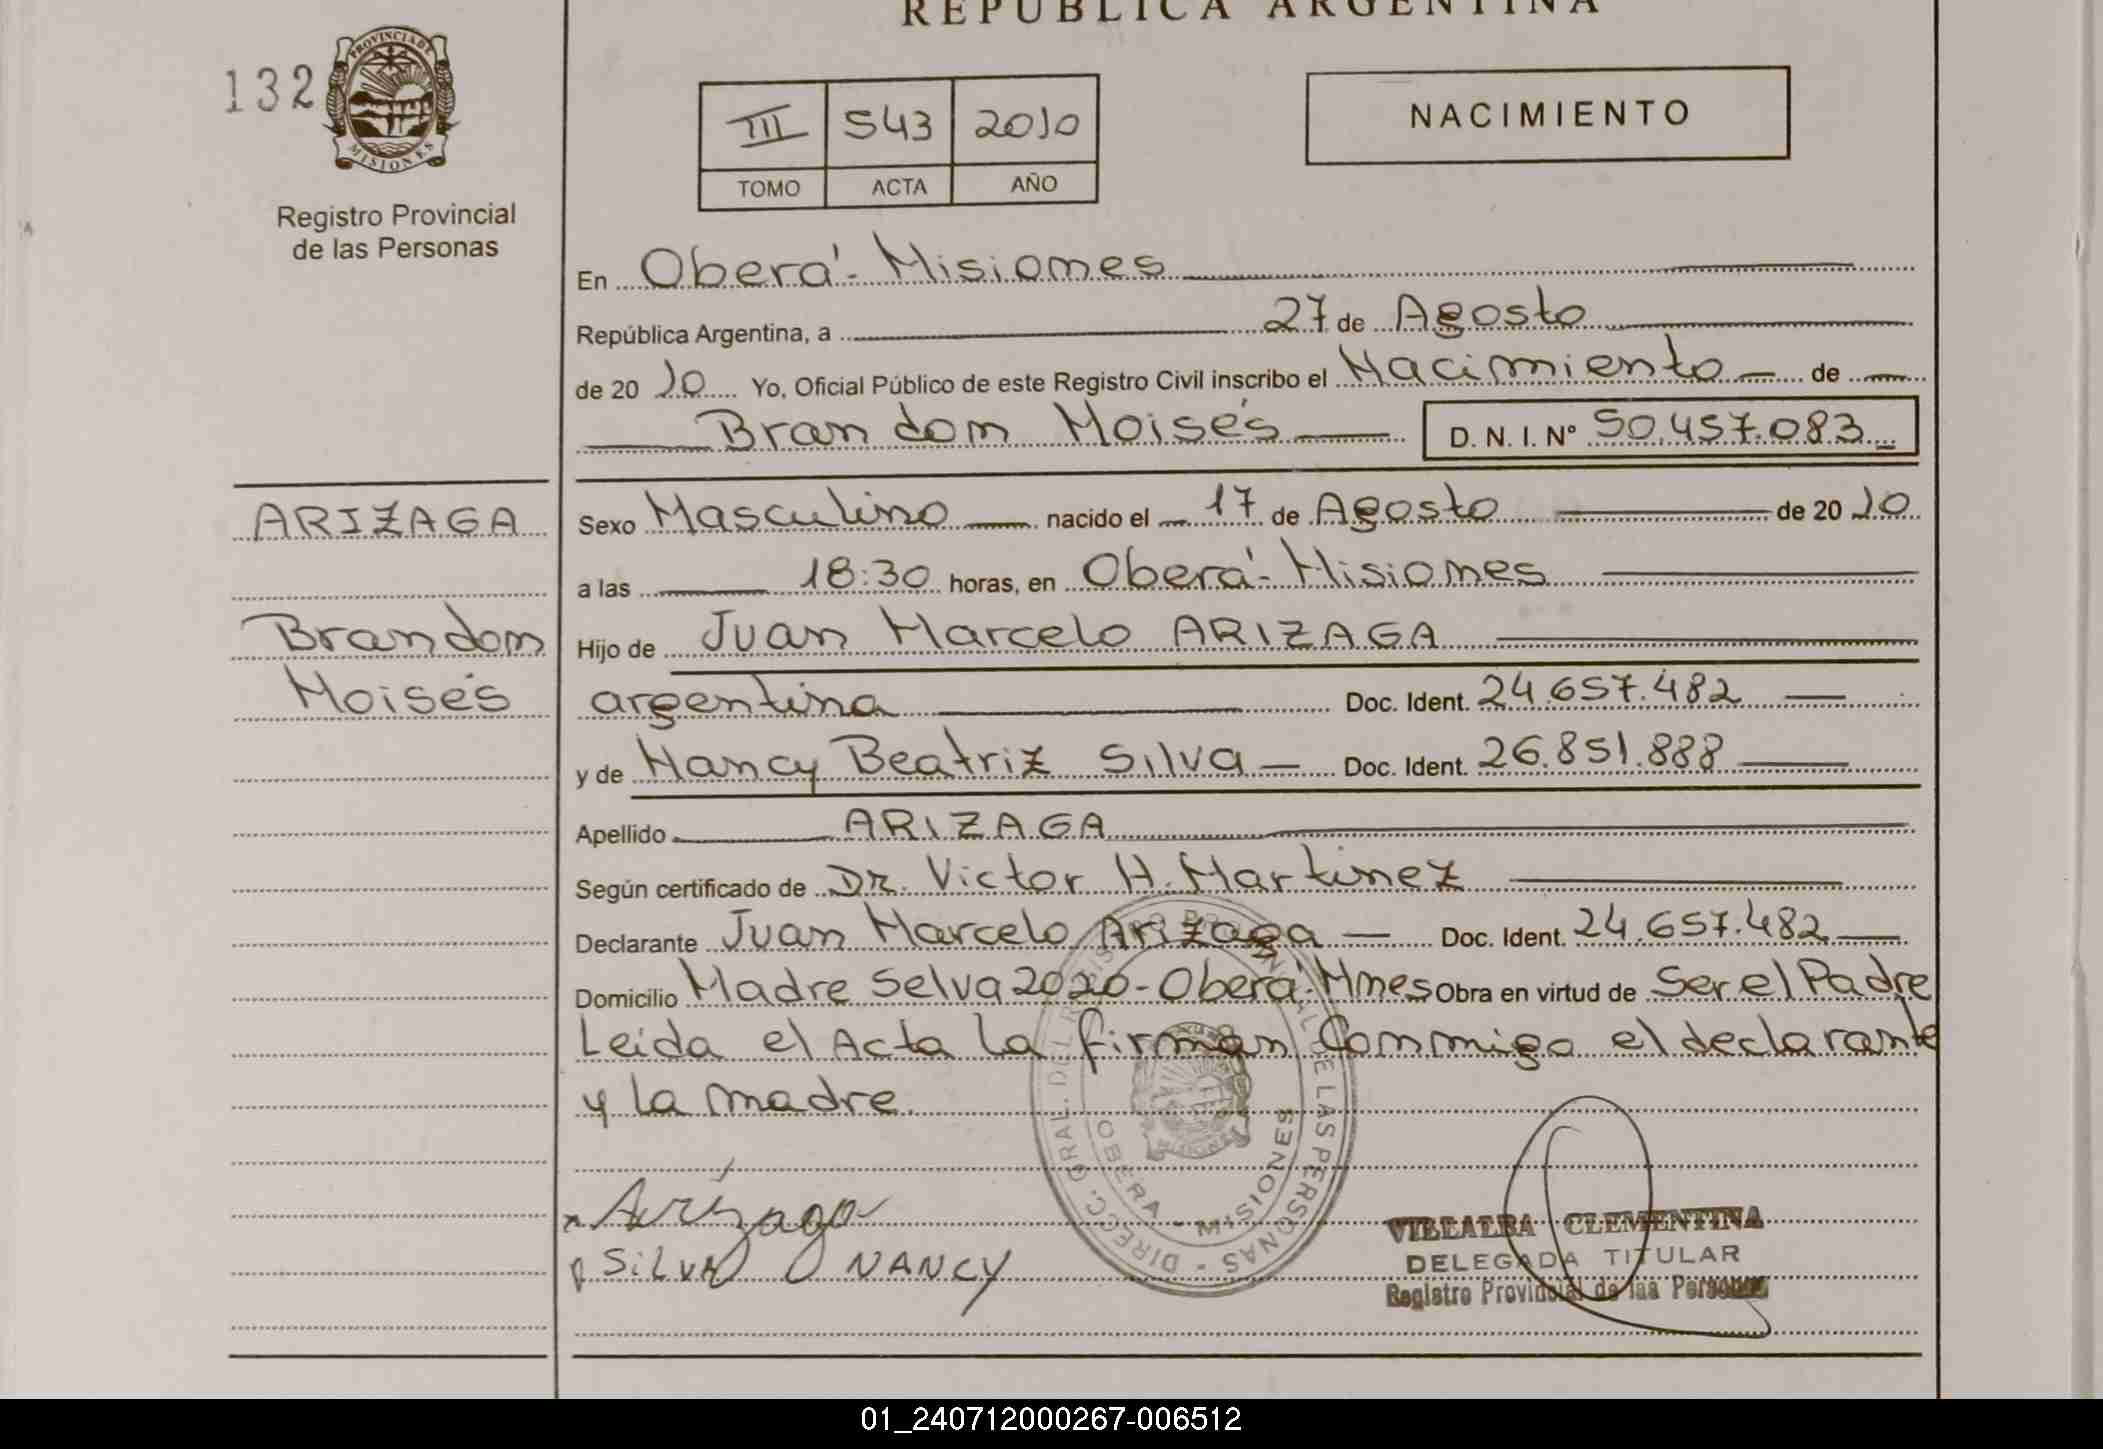 REPUBLICA ARGENTINA
132
PROVINCIA DE
MISIONES
Registro Provincial
de las Personas
III 543 2010
TOMO ACTA AÑO
NACIMIENTO
En Oberá - Misiones
República Argentina, a 27 de Agosto
de 20 10 Yo, Oficial Público de este Registro Civil inscribo el Nacimiento de
Brandon Moisés D. N. I. Nº 50.457.083
ARIZAGA
Brandon
Moisés
Sexo Masculino nacido el 17 de Agosto de 20 10
a las 18:30 horas, en Oberá - Misiones
Hijo de Juan Marcelo ARIZAGA
argentina Doc. Ident. 24.657.482
y de Nancy Beatriz Silva Doc. Ident. 26.851.888
Apellido ARIZAGA
Según certificado de Dr. Victor H. Martinez
Declarante Juan Marcelo Arizaga Doc. Ident. 24.657.482
Domicilio Madre Selva 2020 - Oberá - Mnes Obra en virtud de Ser el Padre
Leída el Acta la firman Conmigo el declarante
y la madre.
Arizaga
Silva NANCY
OBERA - MISIONES
VILLALBA CLEMENTINA
DELEGADA TITULAR
Registro Provincial de las Personas
01_240712000267-006512